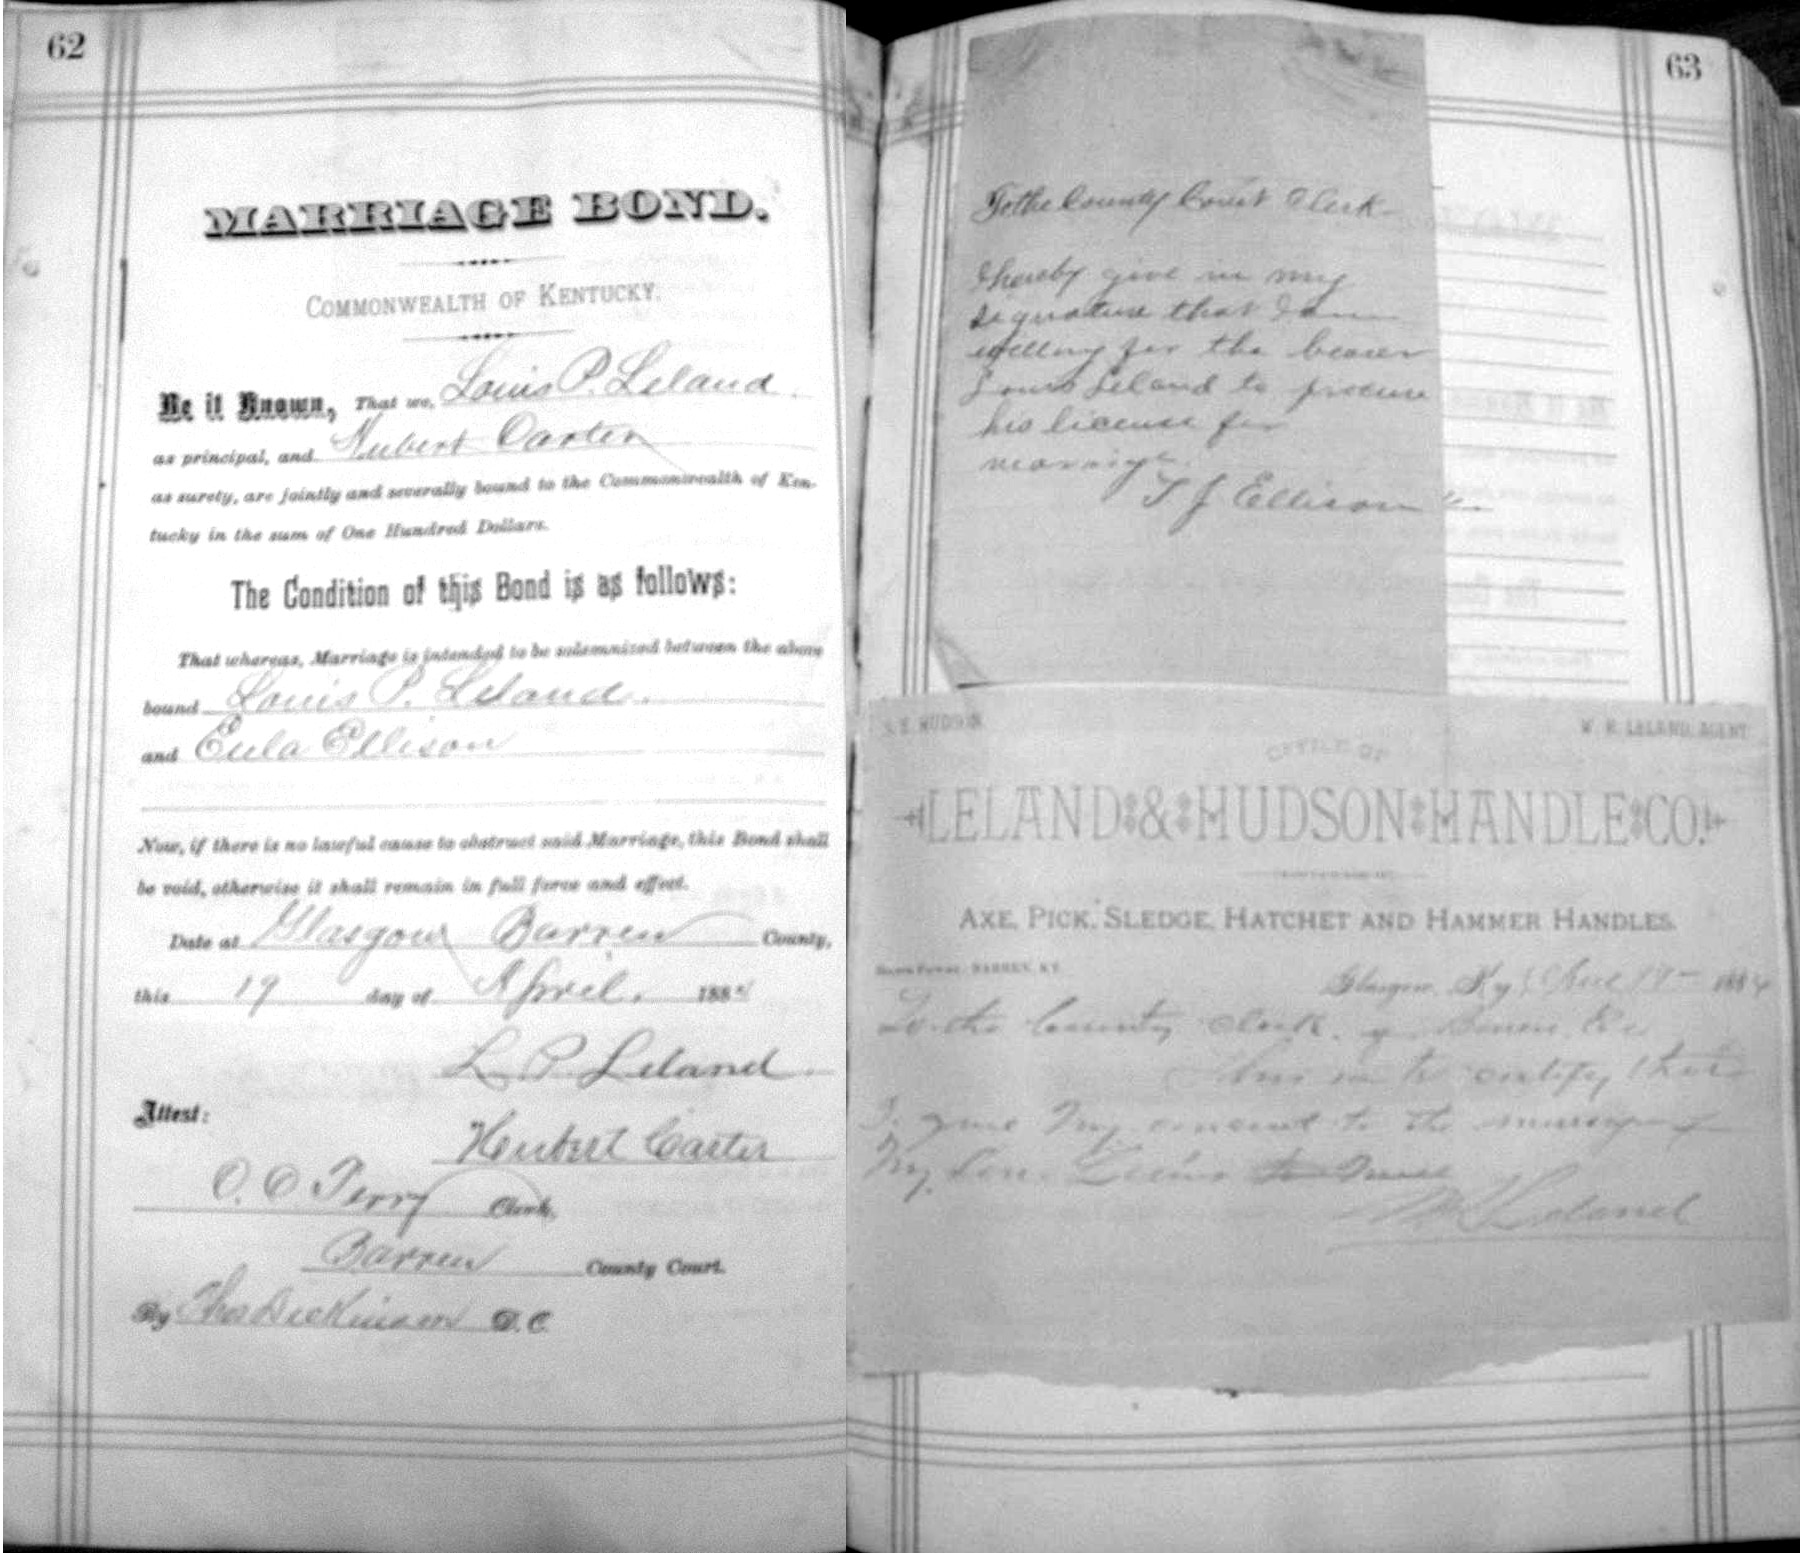 62
MARRIAGE BOND.
COMMONWEALTH OF KENTUCKY.
Be it Known, That we, Louis P. Leland.
as principal, and Hubert Carter
as surety, are jointly and severally bound to the Commonwealth of Ken-
tucky in the sum of One Hundred Dollars.
The Condition of this Bond is as follows:
That whereas, Marriage is intended to be solemnized between the above
bound Louis P. Leland.
and Eula Ellison
Now, if there is no lawful cause to obstruct said Marriage, this Bond shall
be void, otherwise it shall remain in full force and effect.
Date at Glasgow Barren County,
this 19 day of April. 1884
L. P. Leland.
Attest:
Herbert Carter
O. O Perry Clerk,
Barren County Court.
By Thos Dickinson D. C.
63
To the County Court Clerk-
I hereby give in my
signature that I am
willing for the bearer
Louis Leland to procure
his license for
marriage.
T J Ellison
HUDSON
W. R. LELAND, AGENT
OFFICE OF
LELAND & HUDSON HANDLE CO.
AXE, PICK, SLEDGE, HATCHET AND HAMMER HANDLES.
BARREN, KY.
Glasgow, Ky. 19- 1884
To the County Clerk of Barren
This is to certify that
I give my consent to the marriage of
My Son Louis
Leland